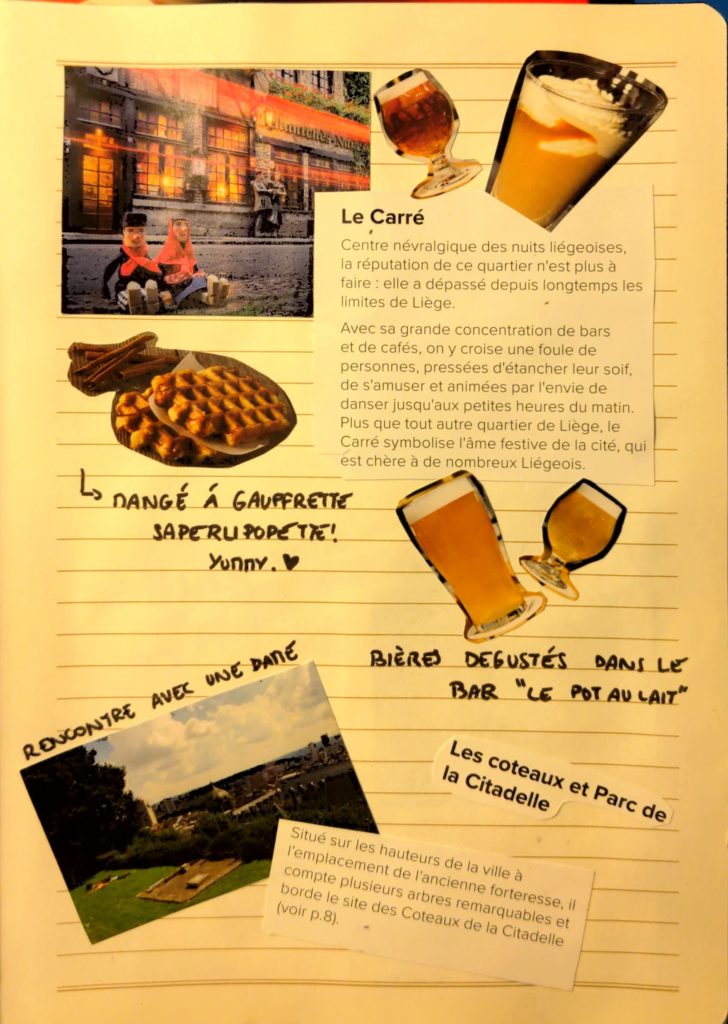 Le Carré
Centre névralgique des nuits liégeoises,
la réputation de ce quartier n'est plus à
faire : elle a dépassé depuis longtemps les
limites de Liège.
Avec sa grande concentration de bars
et de cafés, on y croise une foule de
personnes, pressées d'étancher leur soif,
de s'amuser et animées par l'envie de
danser jusqu'aux petites heures du matin.
Plus que tout autre quartier de Liège, le
Carré symbolise l'âme festive de la cité, qui
est chère à de nombreux Liégeois.
MANGÉ À GAUFFRETTE
SAPERLIPOPETTE!
YUMMY. ♥
BIÈRES DEGUSTÉS DANS LE
BAR "LE POT AU LAIT"
RENCONTRE AVEC UNE DAME
Les coteaux et Parc de
la Citadelle
Situé sur les hauteurs de la ville à
l'emplacement de l'ancienne forteresse, il
compte plusieurs arbres remarquables et
borde le site des Coteaux de la Citadelle
(voir p.8).